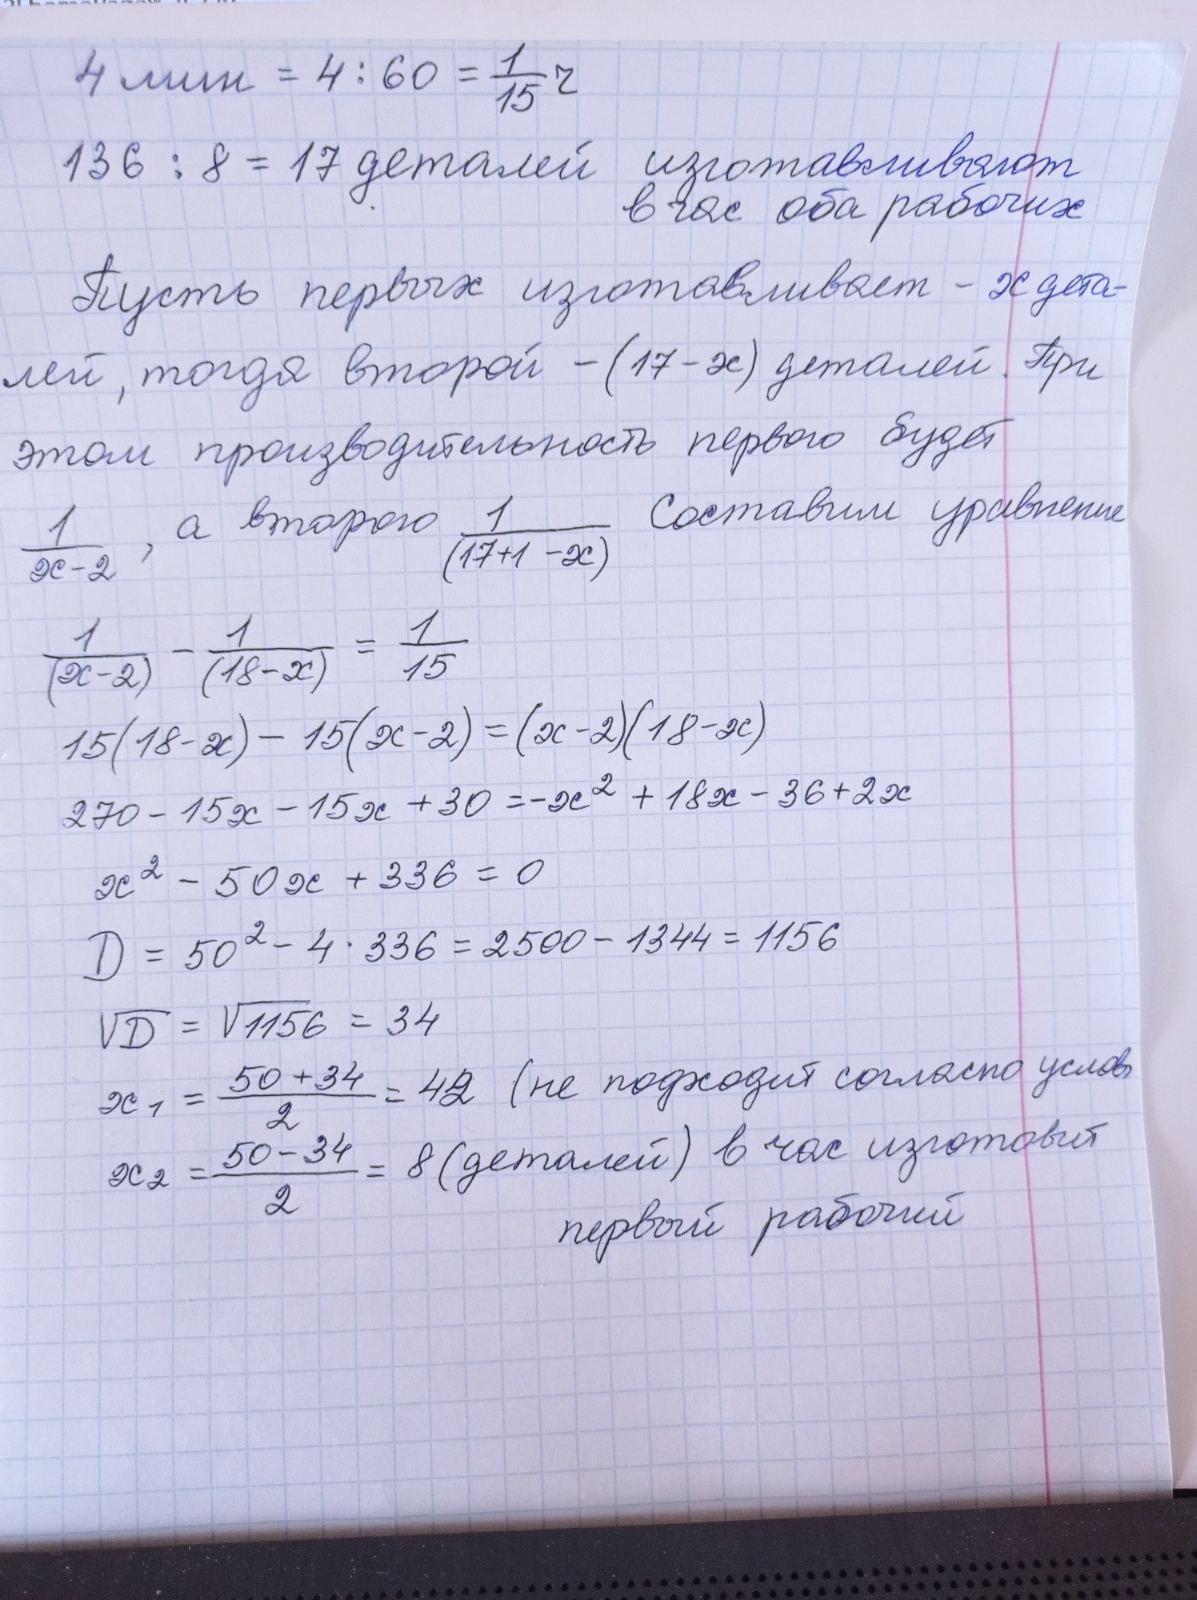 4 мин = 4 : 60 = 1/15 ч
136 : 8 = 17 деталей изготавливают
в час оба рабочих
Пусть первых изготавливает - x дета-
лей, тогда второй - (17 - x) деталей. При
этом производительность первого будет
1/(x-2), а второго 1/(17+1-x) Составим уравнение
1/(x-2) - 1/(18-x) = 1/15
15(18-x) - 15(x-2) = (x-2)(18-x)
270 - 15x - 15x + 30 = -x² + 18x - 36 + 2x
x² - 50x + 336 = 0
D = 50² - 4 · 336 = 2500 - 1344 = 1156
√D = √1156 = 34
x₁ = (50+34)/2 = 42 (не подходит согласно услов
x₂ = (50-34)/2 = 8 (деталей) в час изготовит
первый рабочий